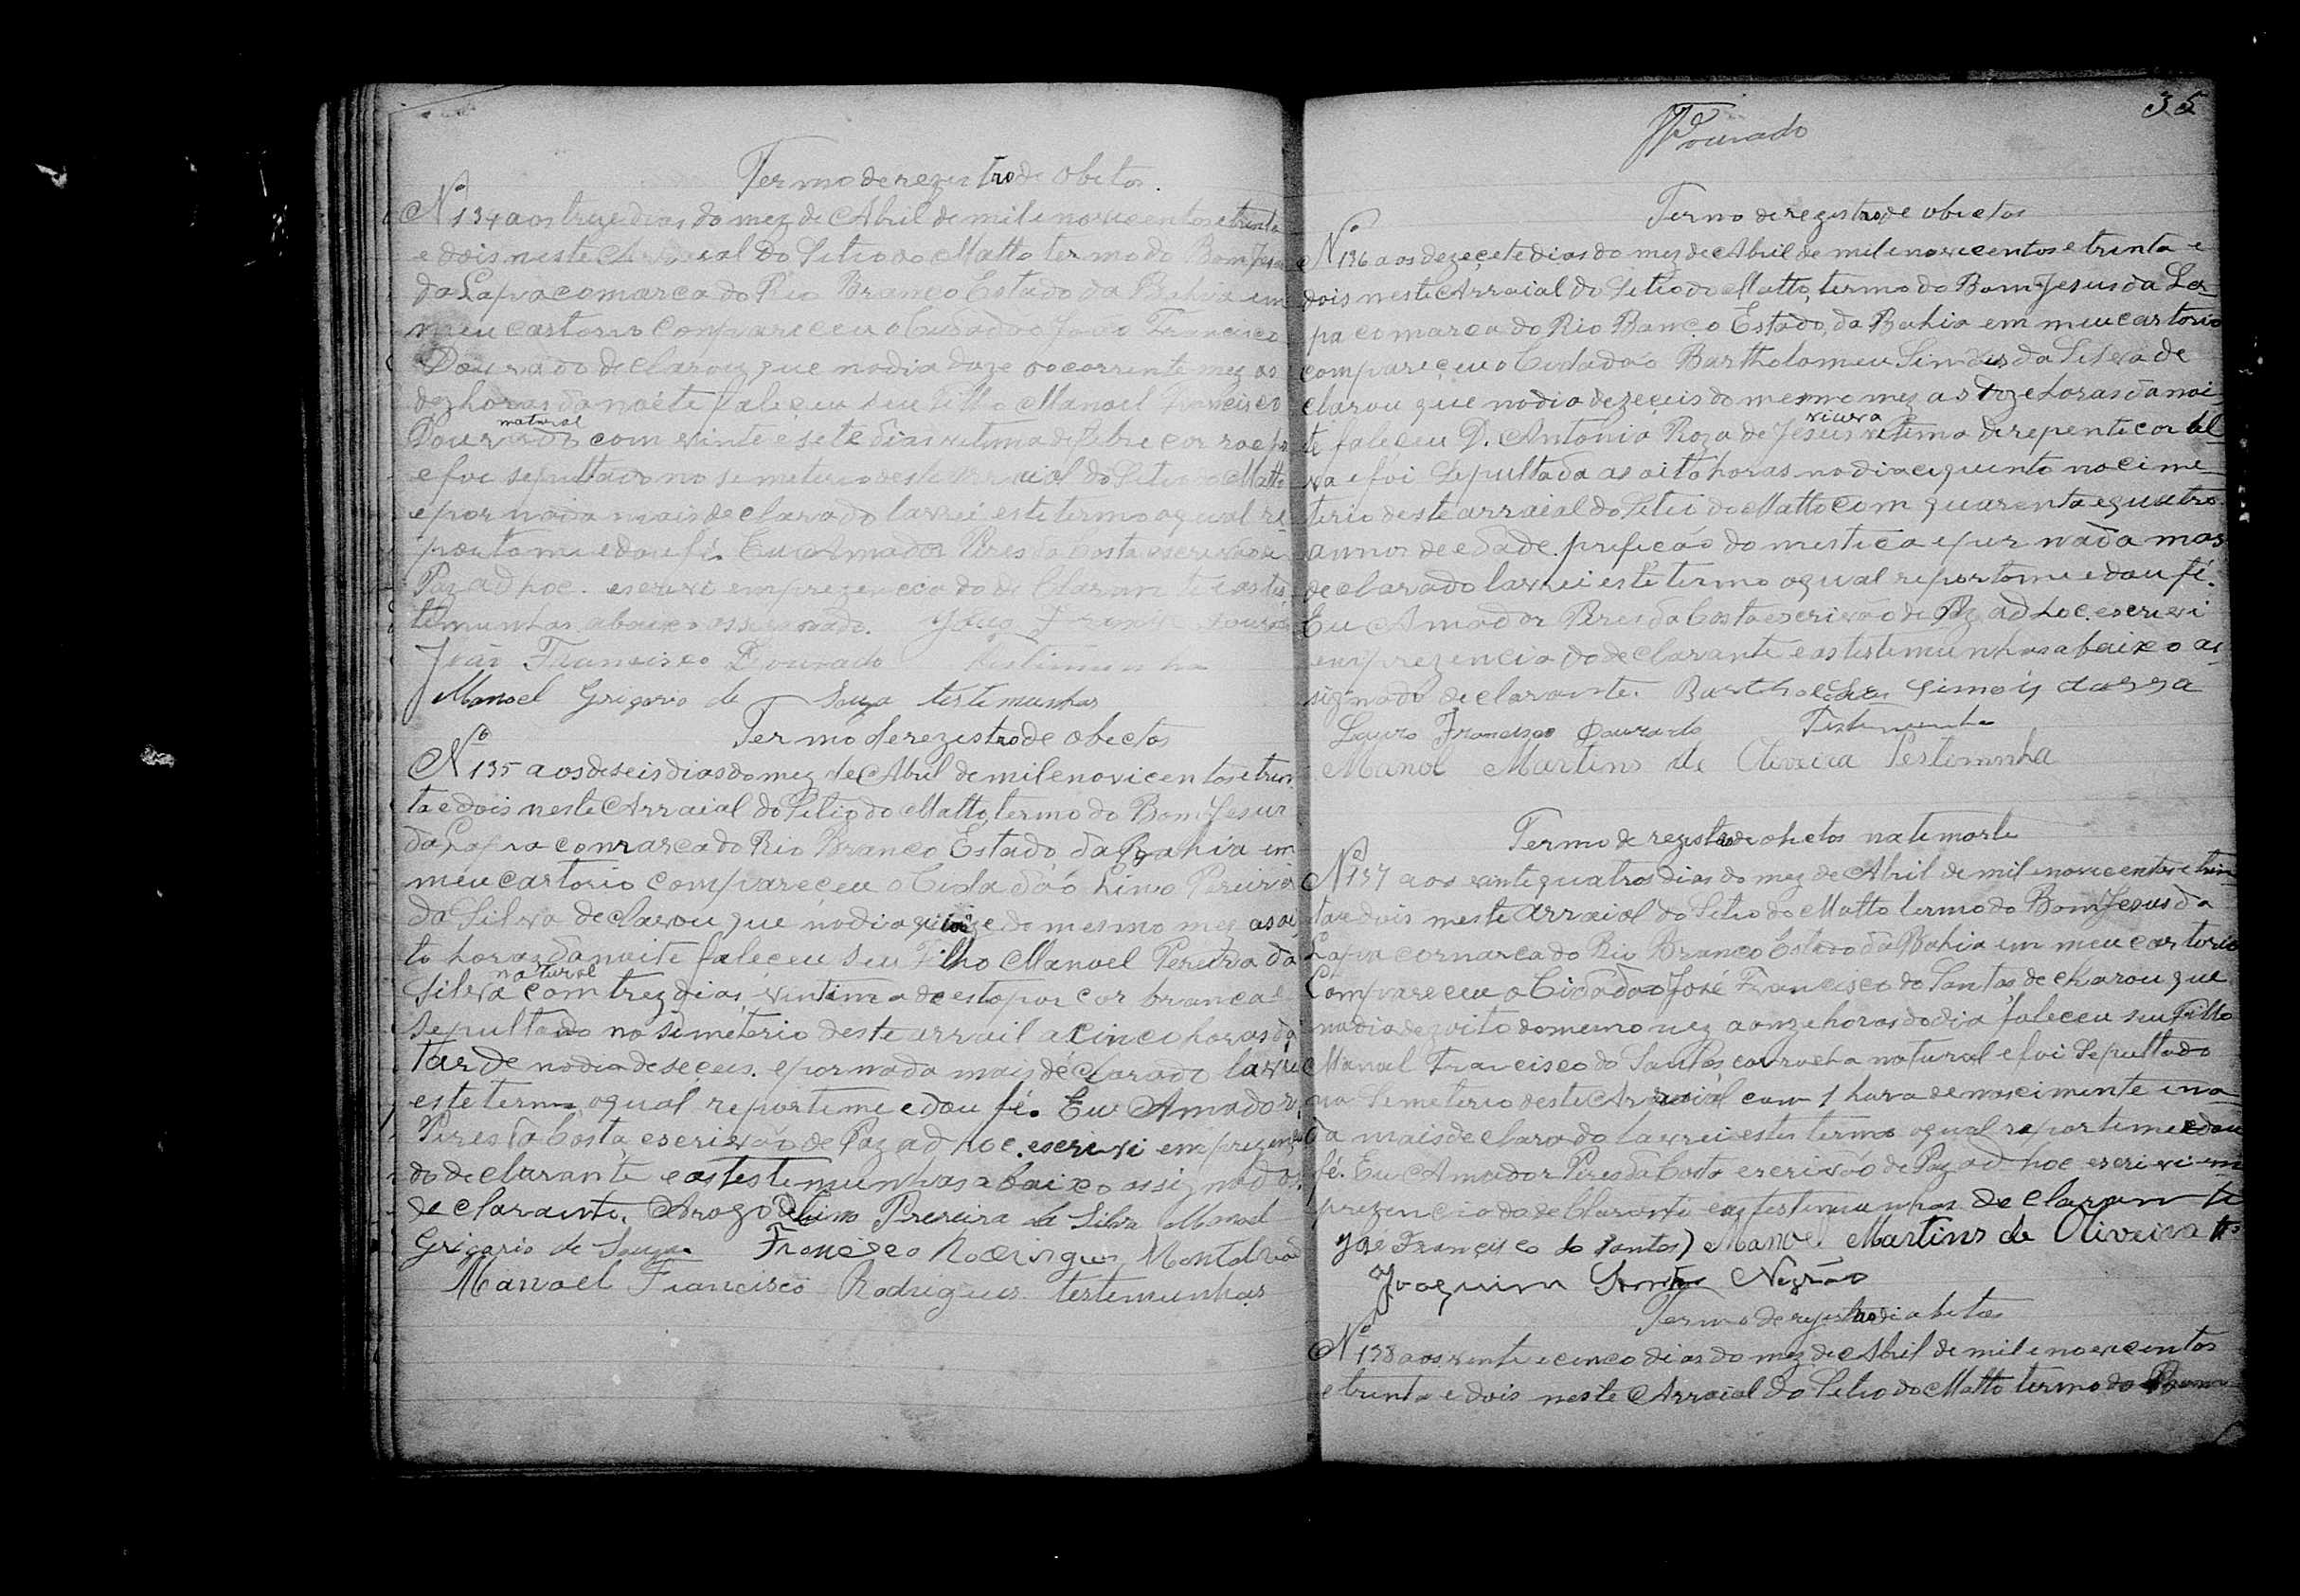 Termo de rezistro de obitos.
Nº 134 aos treze dias do mez de Abril de mil e novicentos e trinta
e dois neste Arraial do Sitio do Matto termo do Bom Jesus
da Lapa comarca do Rio Branco Estado da Bahia em
meu cartorio compareceu o Cidadão João Francisco
Dourado declarou que no dia doze do corrente mez as
dez horas da noite faleceu seu Filho Manoel Francisco
natural
Dourado com vinte e sete dias vitima de febre cor
e foi sepultado no semeterio deste arraial do Sitio do Matto
e por nada mais declarado lavrei este termo o qual re
porto me e dou fé. Eu Amador Pires da Costa escrivão de
Paz ad hoc. escrevi em prezencia do declarante e as tes
temunhas abaixo assignado.
João Francisco Dourado testimunha
Manoel Grigorio de Souza testemunhas
Termo de rezistro de obectos
Nº 135 aos deseis dias do mez de Abril de mil e novicentos e trin
ta e dois neste Arraial do Sitio do Matto, termo do Bom Jesus
da Lapa comarca do Rio Branco Estado da Bahia em
meu cartorio compareceu o Cidadão Lino Pereira
da Silva declarou que no dia quinze do mesmo mez as oi
to horas da noite faleceu seu Filho Manoel Pereira da
natural
Silva com trez dias, vintima de estopor cor branca e
sepultado no simeterio deste arrail a cinco horas da
tarde no dia deseçeis. e por nada mais declarado lavrei
este termo, o qual reportime e dou fé. Eu Amador
Pires da Costa, escrivão de Paz ad hoc. escrivi em prezencia
do declarante e as testemunhas abaixo assignados.
declarante. Arogo de Lino Prereira da Silva Manoel
Grigorio de Souza. Francisco Rodrigues Montalvão
Manoel Francisco Rodrigues testemunhas
35
Dourado
Termo de registro de obectos
Nº 136 aos dezeçete dias do mez de Abril de mil e novecentos e trinta e
dois neste Arraial do Sitio do Matto, termo do Bom Jesus da La
pa comarca do Rio Banço Estado, da Bahia em meu cartorio
compareçeu o Cidadão Bartholomeu Simões da Silva de
clarou que no dia dezeçeis do mesmo mez as doze horas da noi
viuva
te faleceu D. Antonia Roza de Jesus vitima derepente cor al
va e foi sepultada as oito horas no dia no cime
terio deste arraial do Sitio do Matto com quarenta e quatro
annos de edade. profição domestica e por nada mas
declarado lavrei este termo o qual reportome e dou fé.
Eu Amador Pires da Costa escrivão de Paz ad hoc. escrevi
em prezencia do declarante e as testemunhas abaixo as
signado declarante. Bartholomeu Simois
Lauro Francisco Dourado Testemunha
Manol Martins de Oliveira Testimunha
Termo de registro de obectos natimorte
Nº 137 aos vinte quatros dias do mez de Abril de mil e novecentos e trin
ta e dois neste arraial do Sitio do Matto termo do Bom Jesus da
Lapa comarca do Rio Branco Estado da Bahia em meu cartorio
Compareceu o Cidadão José Francisco do Santos, declarou que
no dia dezoito do memo mez a onze horas do dia faleceu seu Filho
Manoel Francisco do Santos cor rocha natural e foi sepultado
no semeterio deste Arraial com 1 hora de nascimente e na
da mais declarado lavrei este termo o qual reportime e dou
fé. Eu Amador Pires da Costa escrivão de Paz ad hoc escrevi em
prezencia do declarante e as testemunhas declarante
José Francisco do Santos) Manoel Martins de Oliveira
Joaquim Negrão
Termo de registro de obitos
Nº 138 aos vente e cinco dias do mez de Abril de mil e novecentos
e trinta e dois neste Arraial do Sitio do Matto termo do Bom